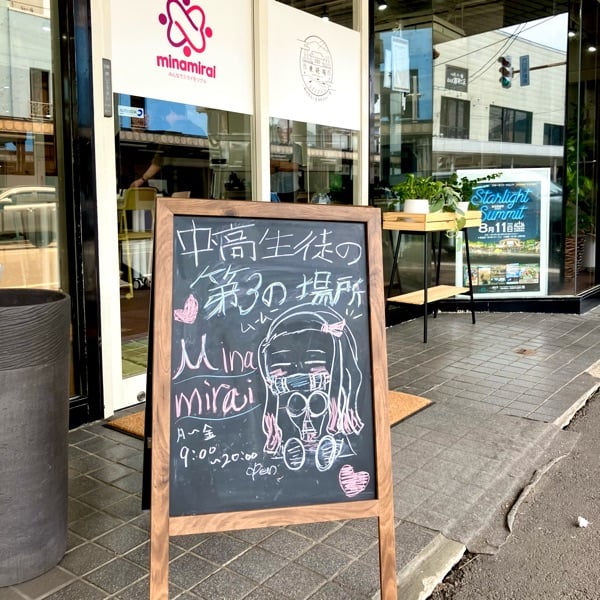 minamirai
みんなでミライをつくる
中高生徒の
第3の場所
Mina
mirai
月〜金
9:00〜20:00
open
Starlight
Summit
8月11日